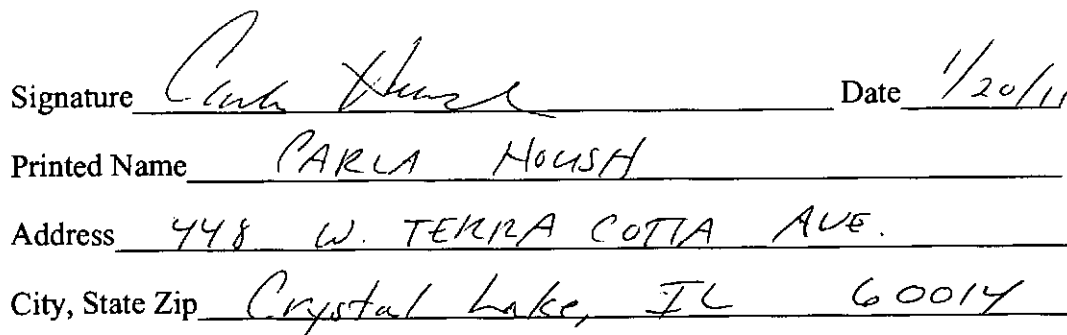 Signature Carla Housh Date 1/20/11
Printed Name CARLA HOUSH
Address 448 W. TERRA COTTA AVE.
City, State Zip Crystal Lake, IL 60014